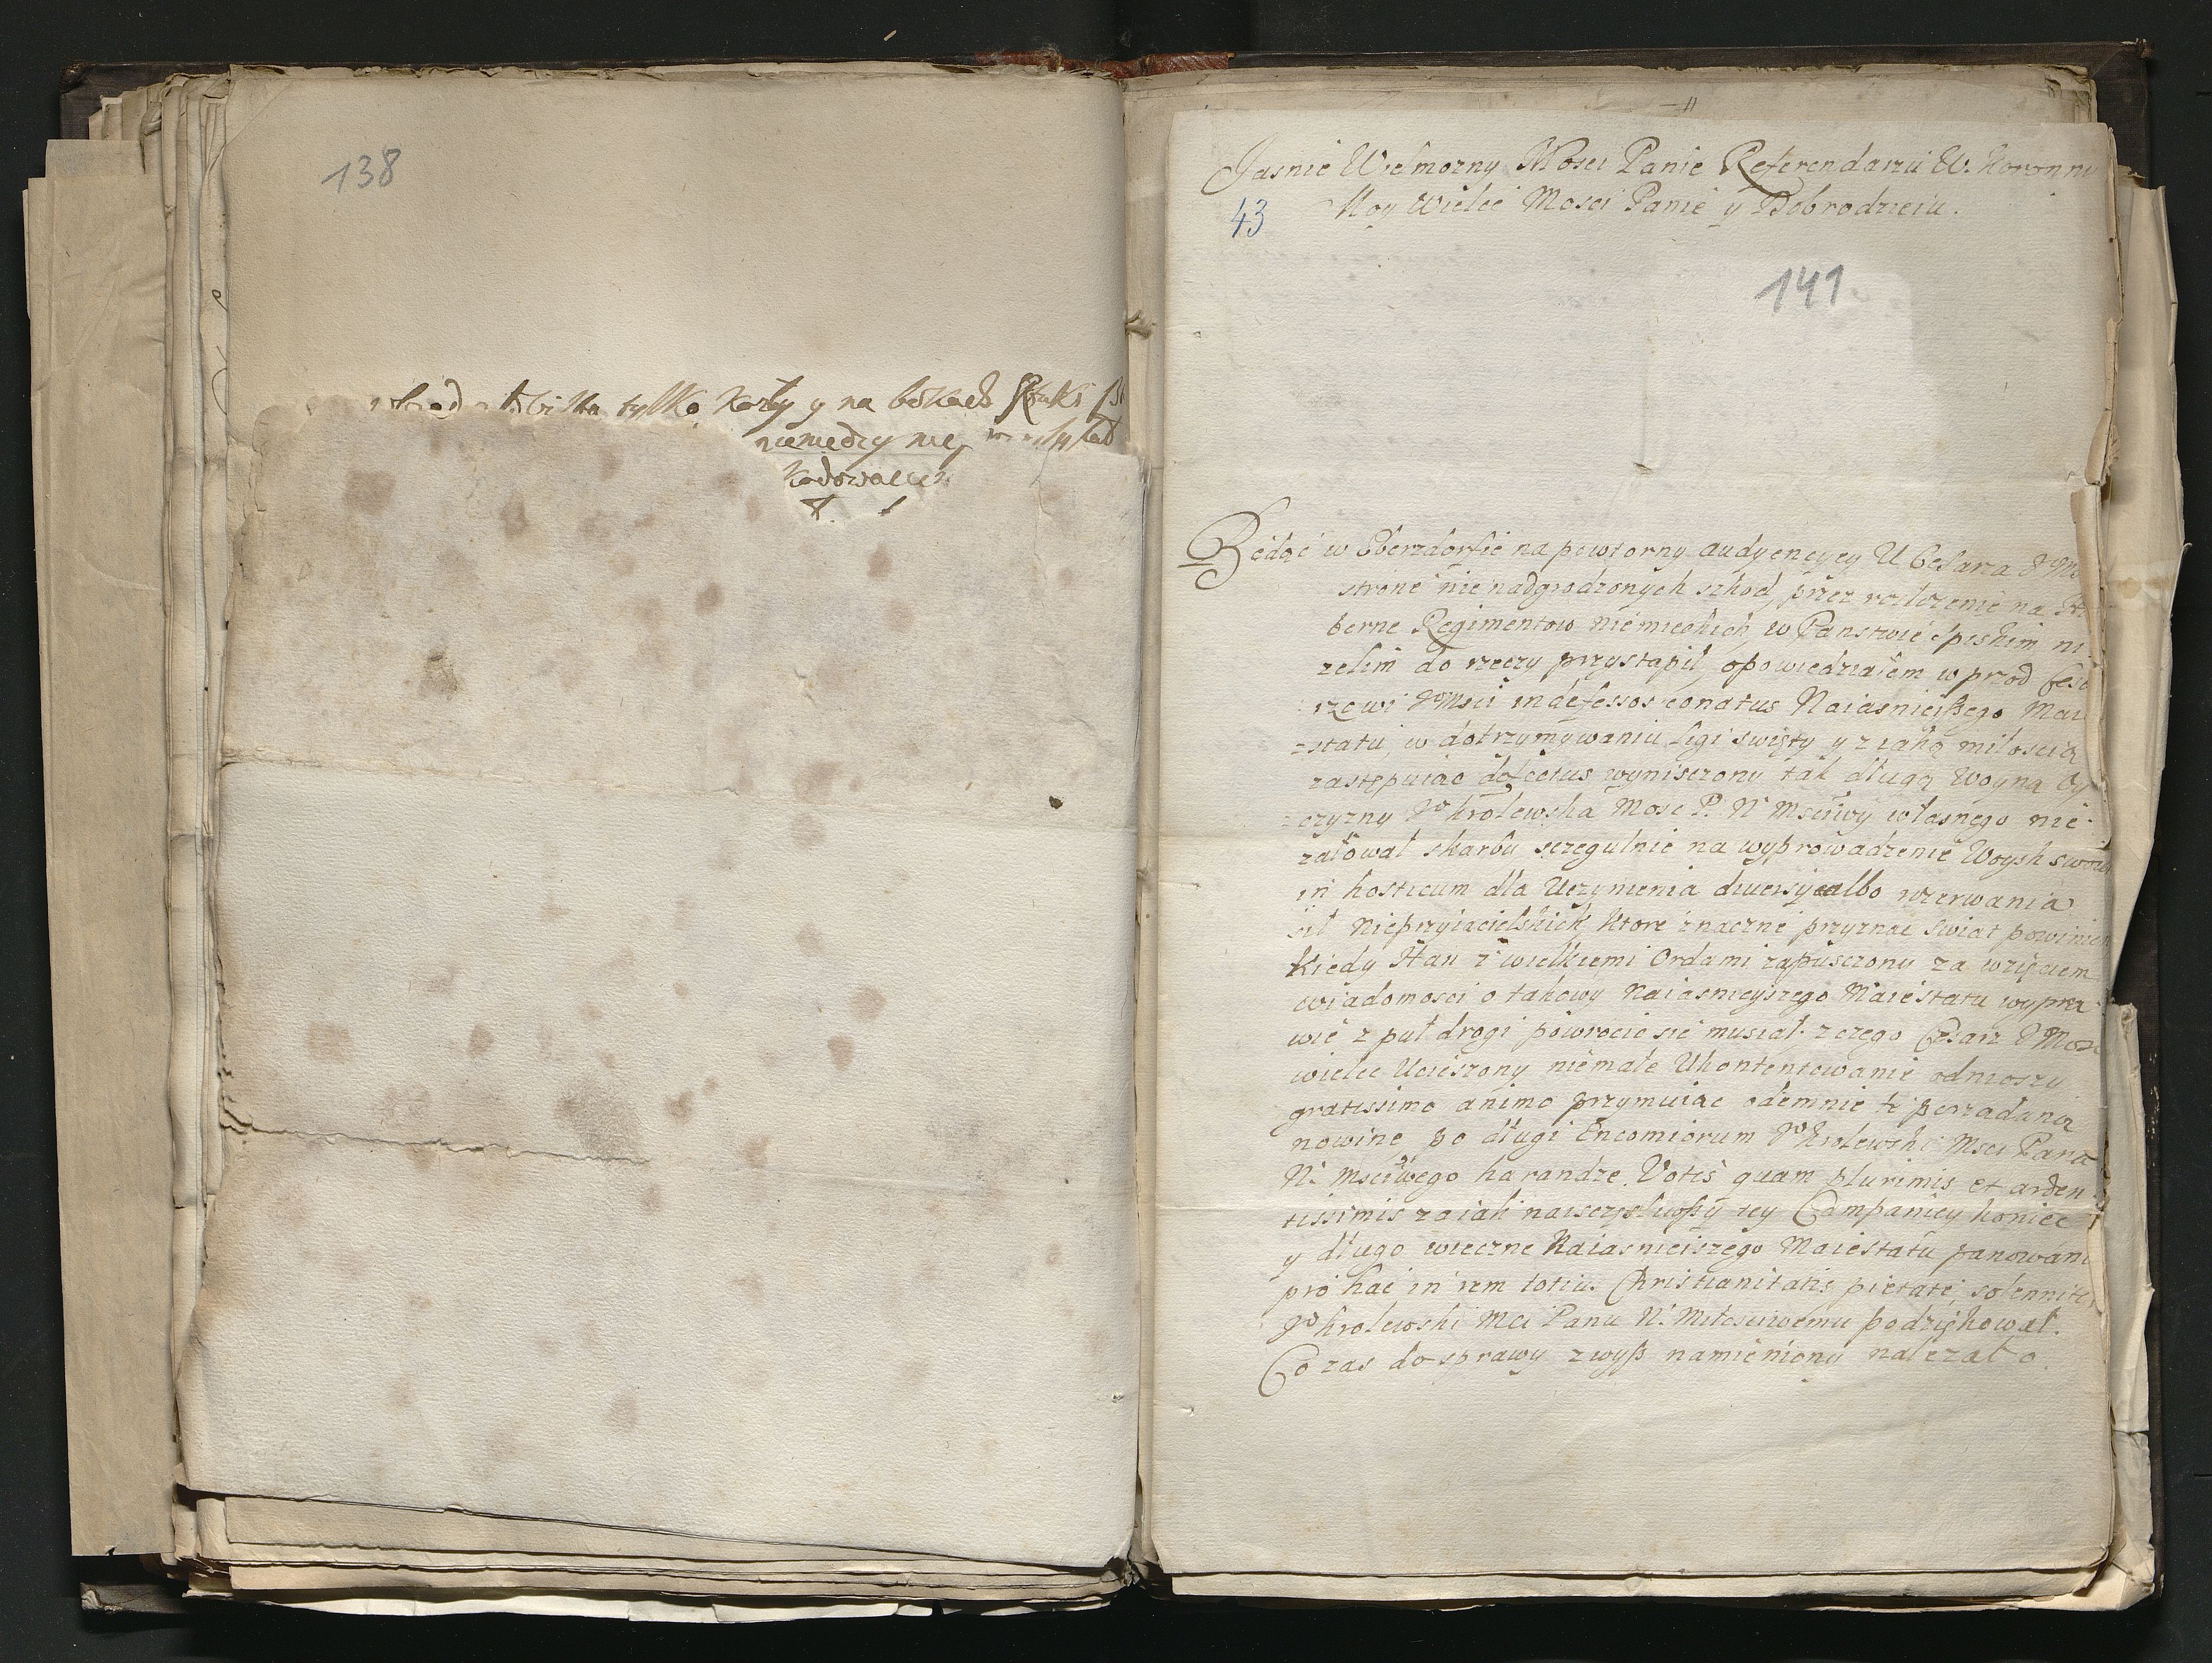 138
tylko karty y na bokach sztuki
niemedzy
43
141.
Jasnie Wielmozny Mosci Panie Referendarzu W. Koronny
Moy Wielce Mosci Panie y Dobrodzieiu.
Bedąc w Eberzdorfie na powtorny audyencyey U Cesarza JoMs
strone nie nadgrodzonych szkod, przez rozłozenie na Hi
berne Regimentow niemieckich, w Panstwie Spiskim ni
zelim do rzeczy przystapił, opowiedziałem w przod Cesa
rzowi JoMsci indefessos conatus Naiasnieißego Maie
=statu, w dotrzymywaniu ligi swięty y z iaką miłoscią
zastępuiac defectus wynisczony tak długą Woyną Oy
=czyzny Jo krolewska Mosc P. N Msciwy własnego nie
załował skarbu sczegulnie na wyprowadzenie Woysk swoich
in hosticum dla Uczynienia diwersyi albo rozerwania
sił Nieprzyiacielskich, Ktore znaczne przyznac swiat powinien
Kiedy Han z wielkiemi Ordami zapusczony za wzięciem
wiadomosci o takowy Naiasnieyszego Maiestatu wypra
wie z puł drogi powrocic sie musiał. z czego Cesarz JMosc
wielce Ucieszony niemałe Ukontentowanie odnioszy
gratissimo animo przymuiac odemnie te porzadaną
nowine, po długi Encomiorum Jo krolewski Msci Pana
N. Msciwego harandze. Votis quam plurimis et arden
tissimis za iak naisczęsliwßy tey Campaniey koniec
y długo wieczne Naiasnieiszego Maiestatu panowani
pro hac in rem totius Christianitatis pietate, solennite
Jo krolewski Mci Panu N. Miłosciwemu podziękował.
Co zas do sprawy zwyß namieniony nalezało.